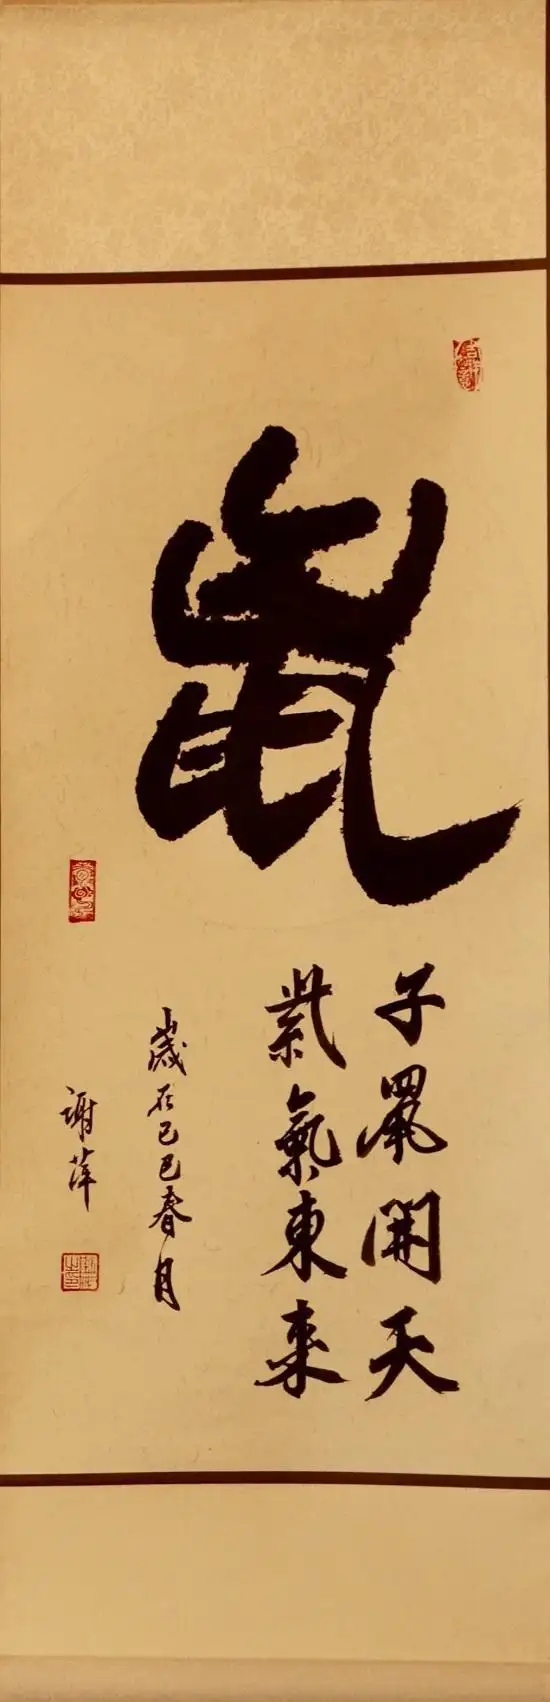 鼠
子鼠開天
紫氣東来
歲在己巳春月
谢萍